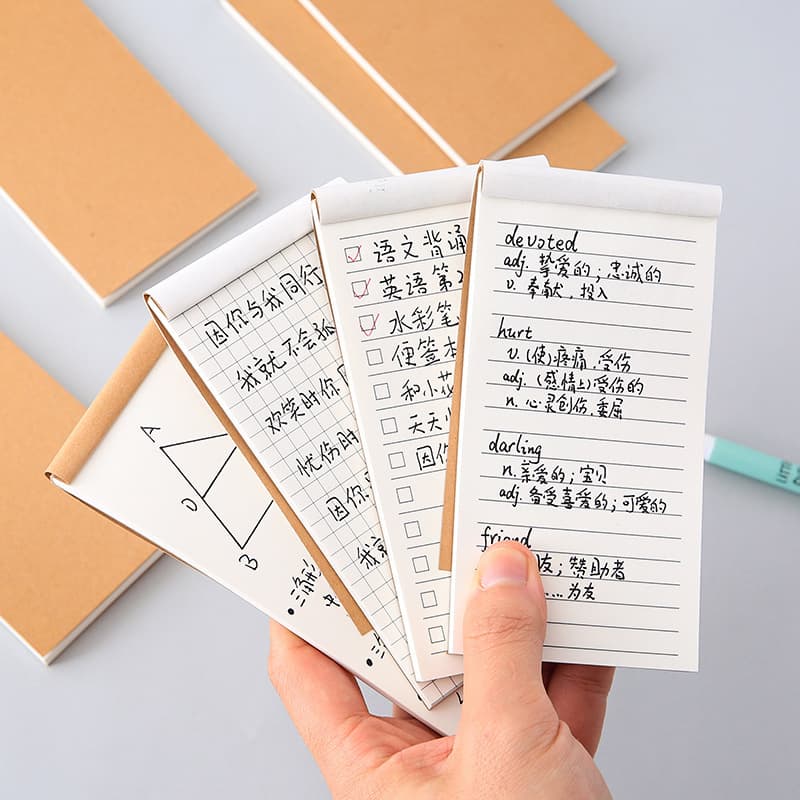 devoted
adj. 挚爱的；忠诚的
v. 奉献，投入
hurt
v. (使)疼痛，受伤
adj. (感情上)受伤的
n. 心灵创伤，委屈
darling
n. 亲爱的；宝贝
adj. 备受喜爱的；可爱的
friend
友；赞助者
……为友
语文背诵
英语第
水彩笔
便签本
和小花
天天
因你
因你与我同行
我就不会孤
欢笑时你
忧伤时
因你
我就
A
D
B
三角形